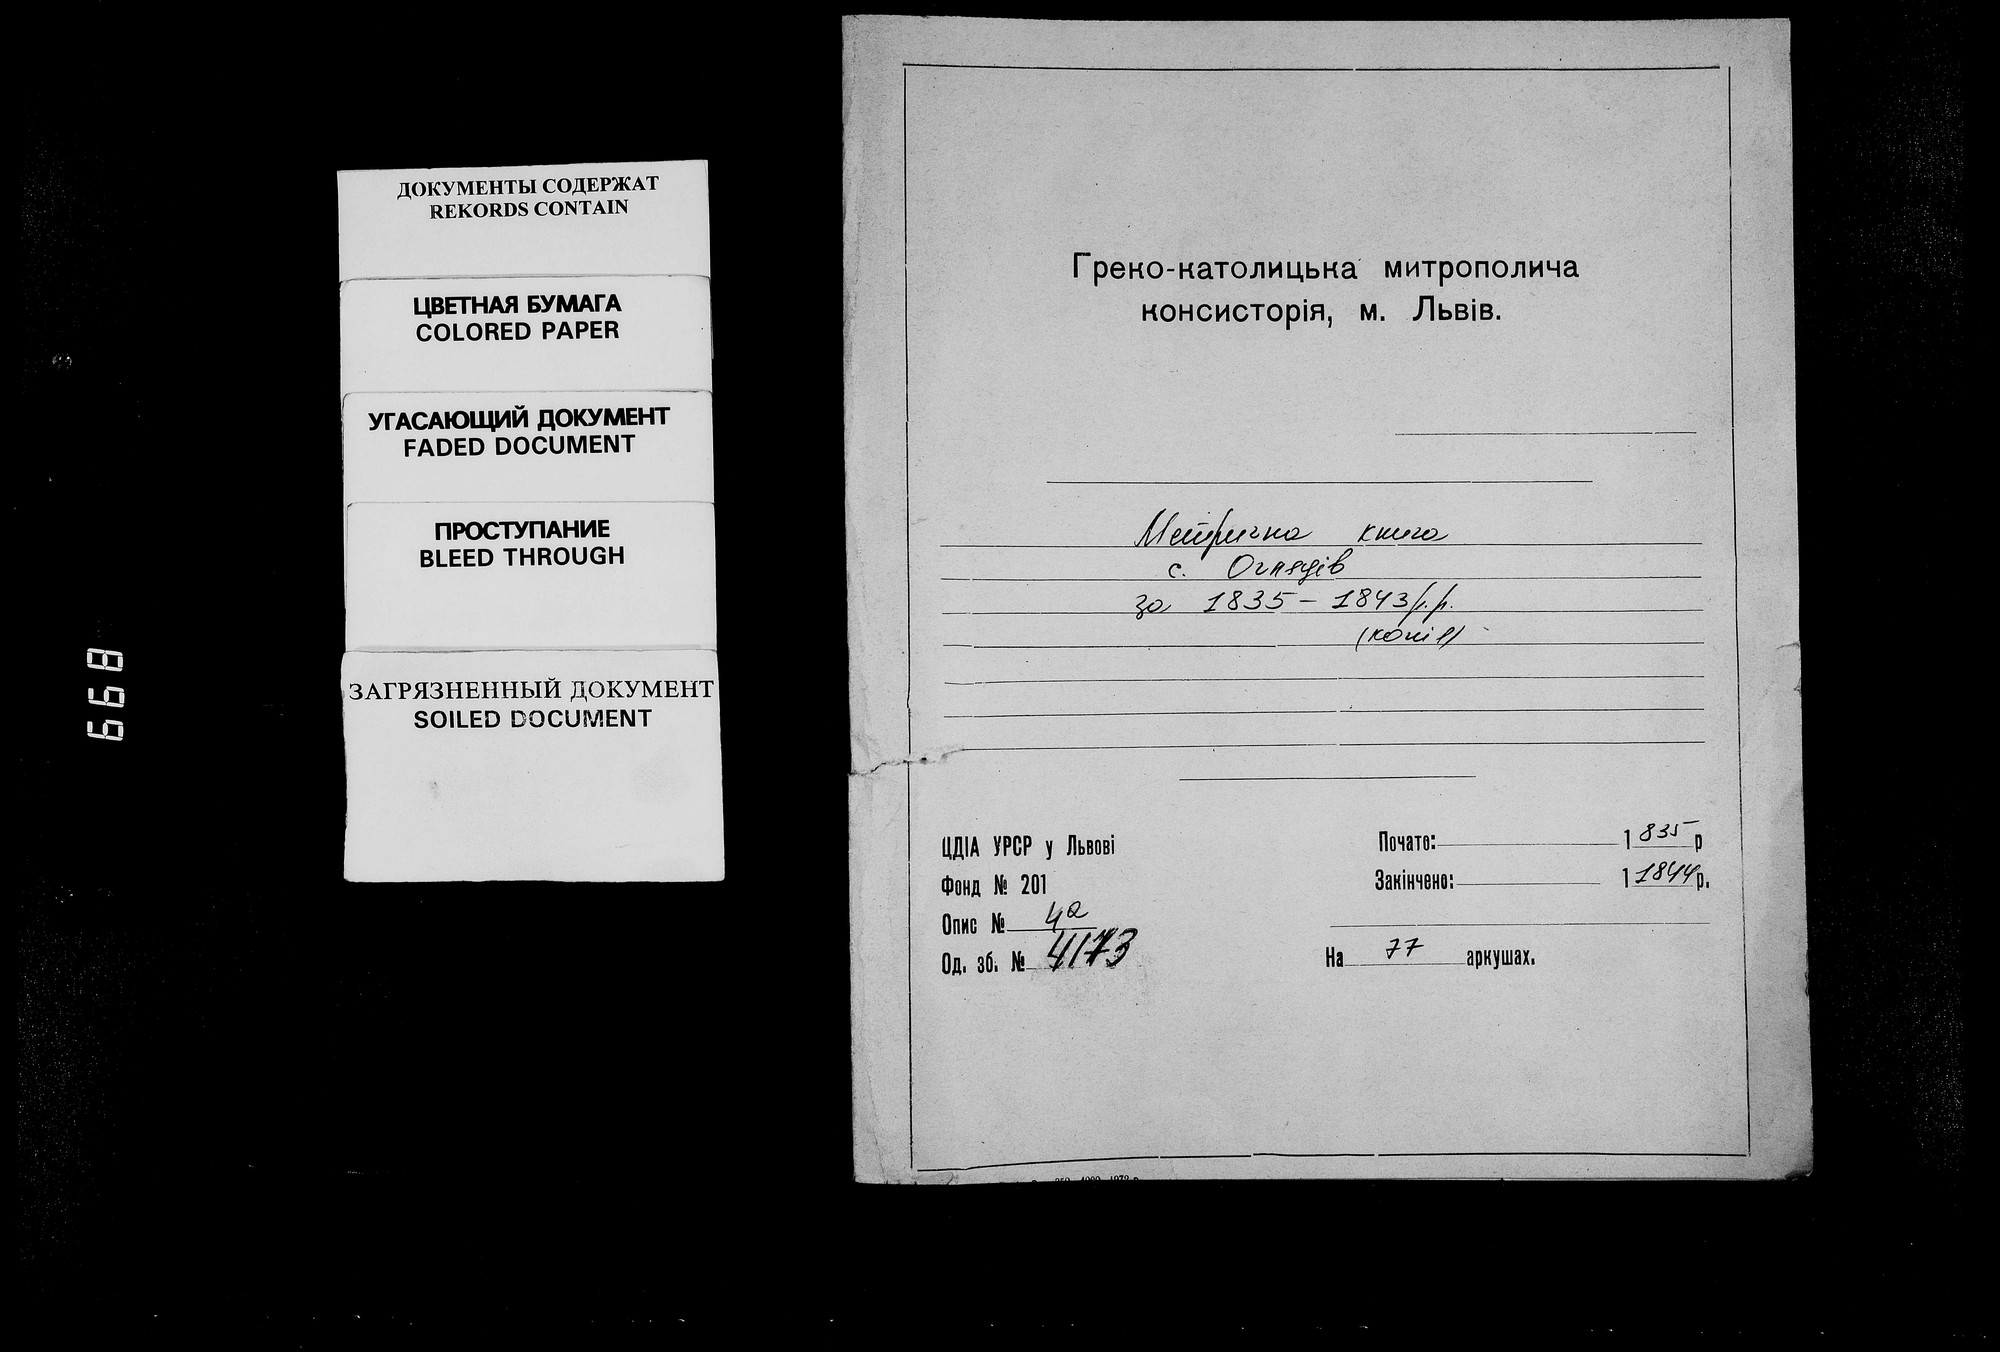 ДОКУМЕНТЫ СОДЕРЖАТ
REKORDS CONTAIN
ЦВЕТНАЯ БУМАГА
COLORED PAPER
УГАСАЮЩИЙ ДОКУМЕНТ
FADED DOCUMENT
ПРОСТУПАНИЕ
BLEED THROUGH
ЗАГРЯЗНЕННЫЙ ДОКУМЕНТ
SOILED DOCUMENT
899
Греко-католицька митрополича
консисторія, м. Львів.
Метрична книга
с. Оглядів
за 1835 – 1843 р.р.
(копія)
ЦДІА УРСР у Львові
Фонд № 201
Опис № 4а
Од. зб. № 4173
Почато: 1835 р
Закінчено: 11844 р.
На 77 аркушах.